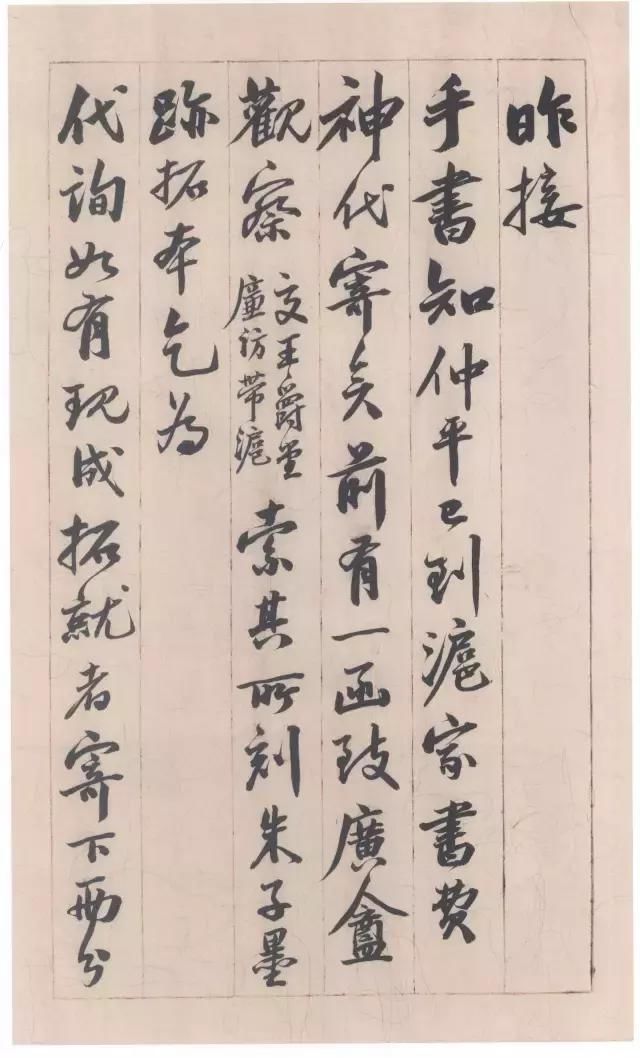 昨接
手書知仲平已到滬家書費
神代寄矣前有一函致廣盦
觀察
交王爵堂
廉訪帶滬
索其所刻朱子墨
跡拓本乞為
代詢如有現成拓就者寄下兩分